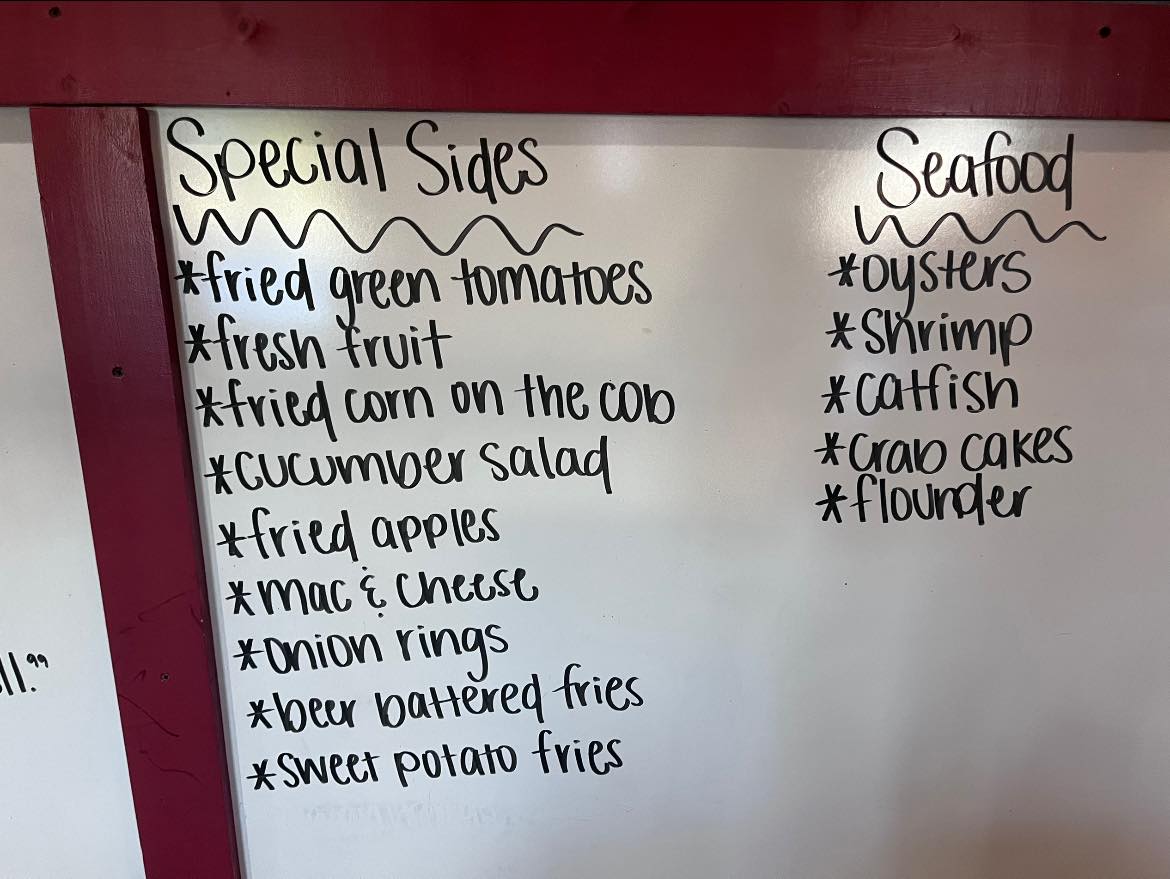 Special Sides
*fried green tomatoes
*fresh fruit
*fried corn on the cob
*cucumber salad
*fried apples
*mac & cheese
*onion rings
*beer battered fries
*sweet potato fries
Seafood
*oysters
*shrimp
*catfish
*crab cakes
*flounder